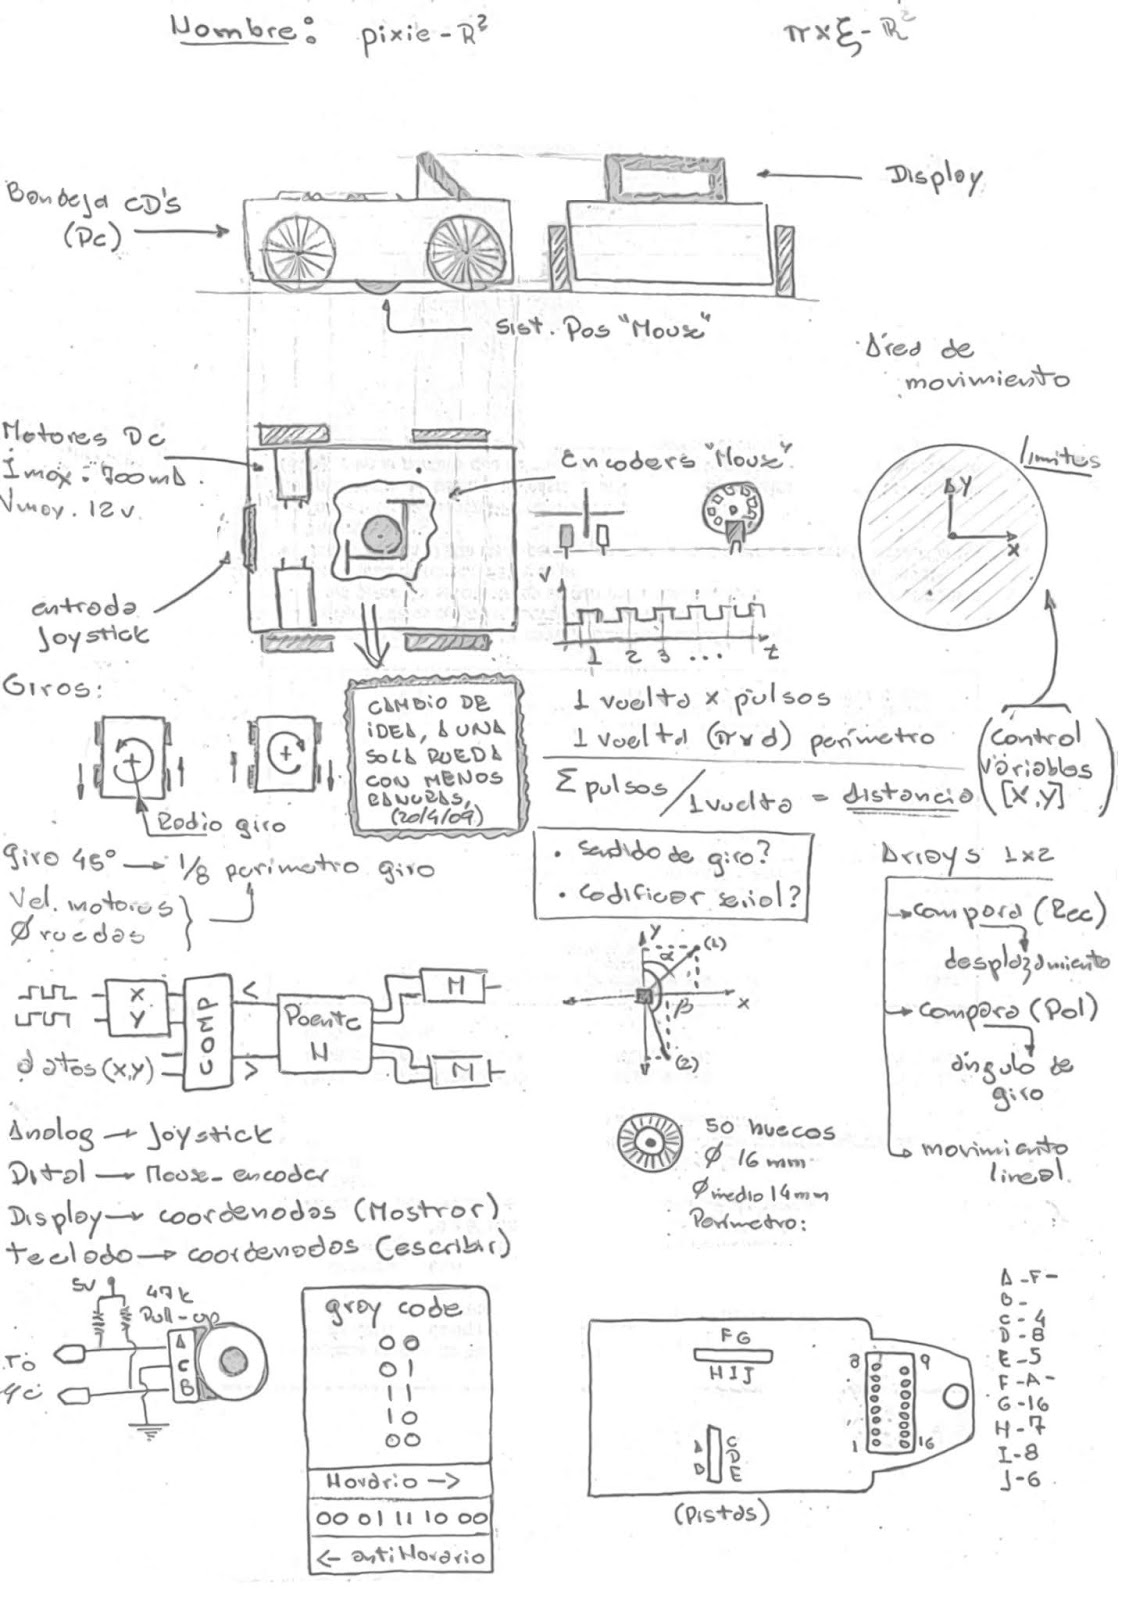 Nombre: pixie-R² πxξ-R²
Display
Bandeja CD's
(Pc)
Sist. Pos "Mouse"
Área de
movimiento
límites
Y
X
Motores Dc
Imax: 700mA.
Vmax. 12v.
Encoders "Mouse"
entrada
Joystick
V
1 2 3 ... t
Giros:
Radio giro
CAMBIO DE
IDEA, A UNA
SOLA RUEDA
CON MENOS
RANURAS,
(20/4/09)
1 vuelta x pulsos
1 vuelta (π x d) perímetro
Σ pulsos / 1 vuelta = distancia
(Control
variables
[X,Y])
Giro 45° → 1/8 perímetro giro
Vel. motores
Ø ruedas
• sentido de giro?
• codificar señal?
Arrays 1x2
compara (Rec)
desplazamiento
compara (Pol)
ángulo de
giro
movimiento
lineal
Y
α
(1)
X
β
(2)
X
Y
datos (X,Y)
COMP
<
>
Poente
H
M
M
Analog → Joystick
Dital → Mouse-encoder
Display → coordenadas (Mostrar)
Teclado → coordenadas (escribir)
50 huecos
Ø 16 mm
Ø medio 14mm
Perímetro:
5V
47k
Pull-up
A
C
B
gray code
00
01
11
10
00
Horario →
00 01 11 10 00
← antiHorario
FG
HIJ
A
B
C
D
E
8 9
1 16
(Pistas)
A-F-
B-
C-4
D-8
E-5
F-A-
G-16
H-7
I-8
J-6